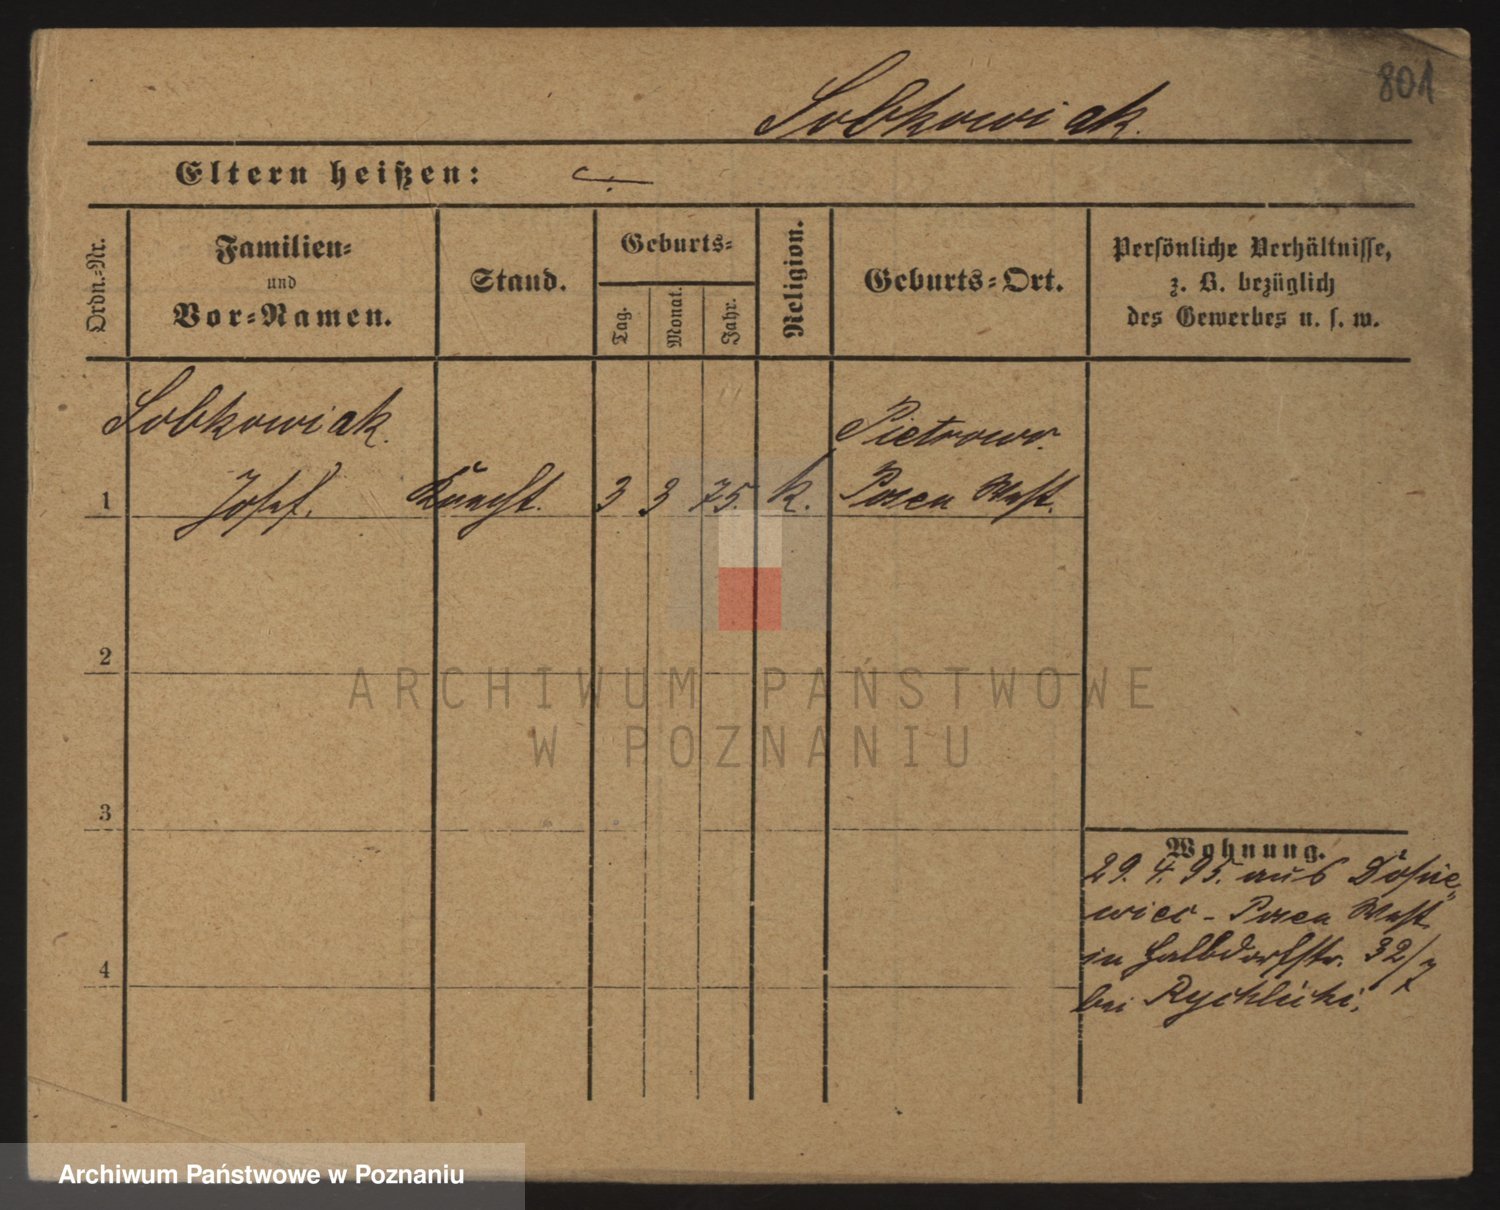 801
Sobkowiak.
Eltern heißen:
Ordn.-Nr.
Familien-
und
Vor-Namen.
Stand.
Geburts-
Tag.
Monat.
Jahr.
Religion.
Geburts-Ort.
Persönliche Verhältnisse,
z. B. bezüglich
des Gewerbes u. s. w.
Sobkowiak. Pietrowo.
1 Josef. Knecht. 3 3 75. k. Posen West.
2
ARCHIWUM PAŃSTWOWE
W POZNANIU
3
Wohnung.
29. 4. 95. aus
wiec - Posen West
4 in Halbdorfstr. 32/7
bei Rychlicki.
Archiwum Państwowe w Poznaniu